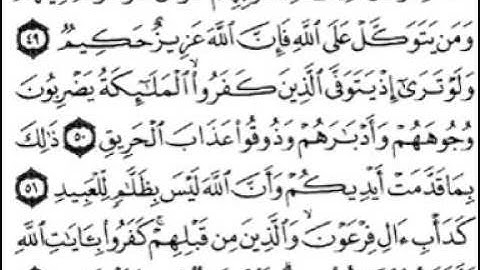 وَمَن يَتَوَكَّلْ عَلَى ٱللَّهِ فَإِنَّ ٱللَّهَ عَزِيزٌ حَكِيمٌ ٤٩
وَلَوْ تَرَىٰٓ إِذْ يَتَوَفَّى ٱلَّذِينَ كَفَرُوا۟ ۙ ٱلْمَلَـٰٓئِكَةُ يَضْرِبُونَ
وُجُوهَهُمْ وَأَدْبَـٰرَهُمْ وَذُوقُوا۟ عَذَابَ ٱلْحَرِيقِ ٥٠ ذَٰلِكَ
بِمَا قَدَّمَتْ أَيْدِيكُمْ وَأَنَّ ٱللَّهَ لَيْسَ بِظَلَّـٰمٍ لِّلْعَبِيدِ ٥١
كَدَأْبِ ءَالِ فِرْعَوْنَ ۙ وَٱلَّذِينَ مِن قَبْلِهِمْ ۚ كَفَرُوا۟ بِـَٔايَـٰتِ ٱللَّهِ